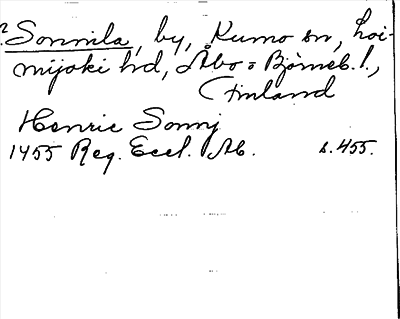 Sonnila, by, Kumo sn, Loi-
mijoki hd, Åbo = Björneb. l.,
Finland
Henric Sonnj
1455 Reg. Eccl. Ab. s. 455.